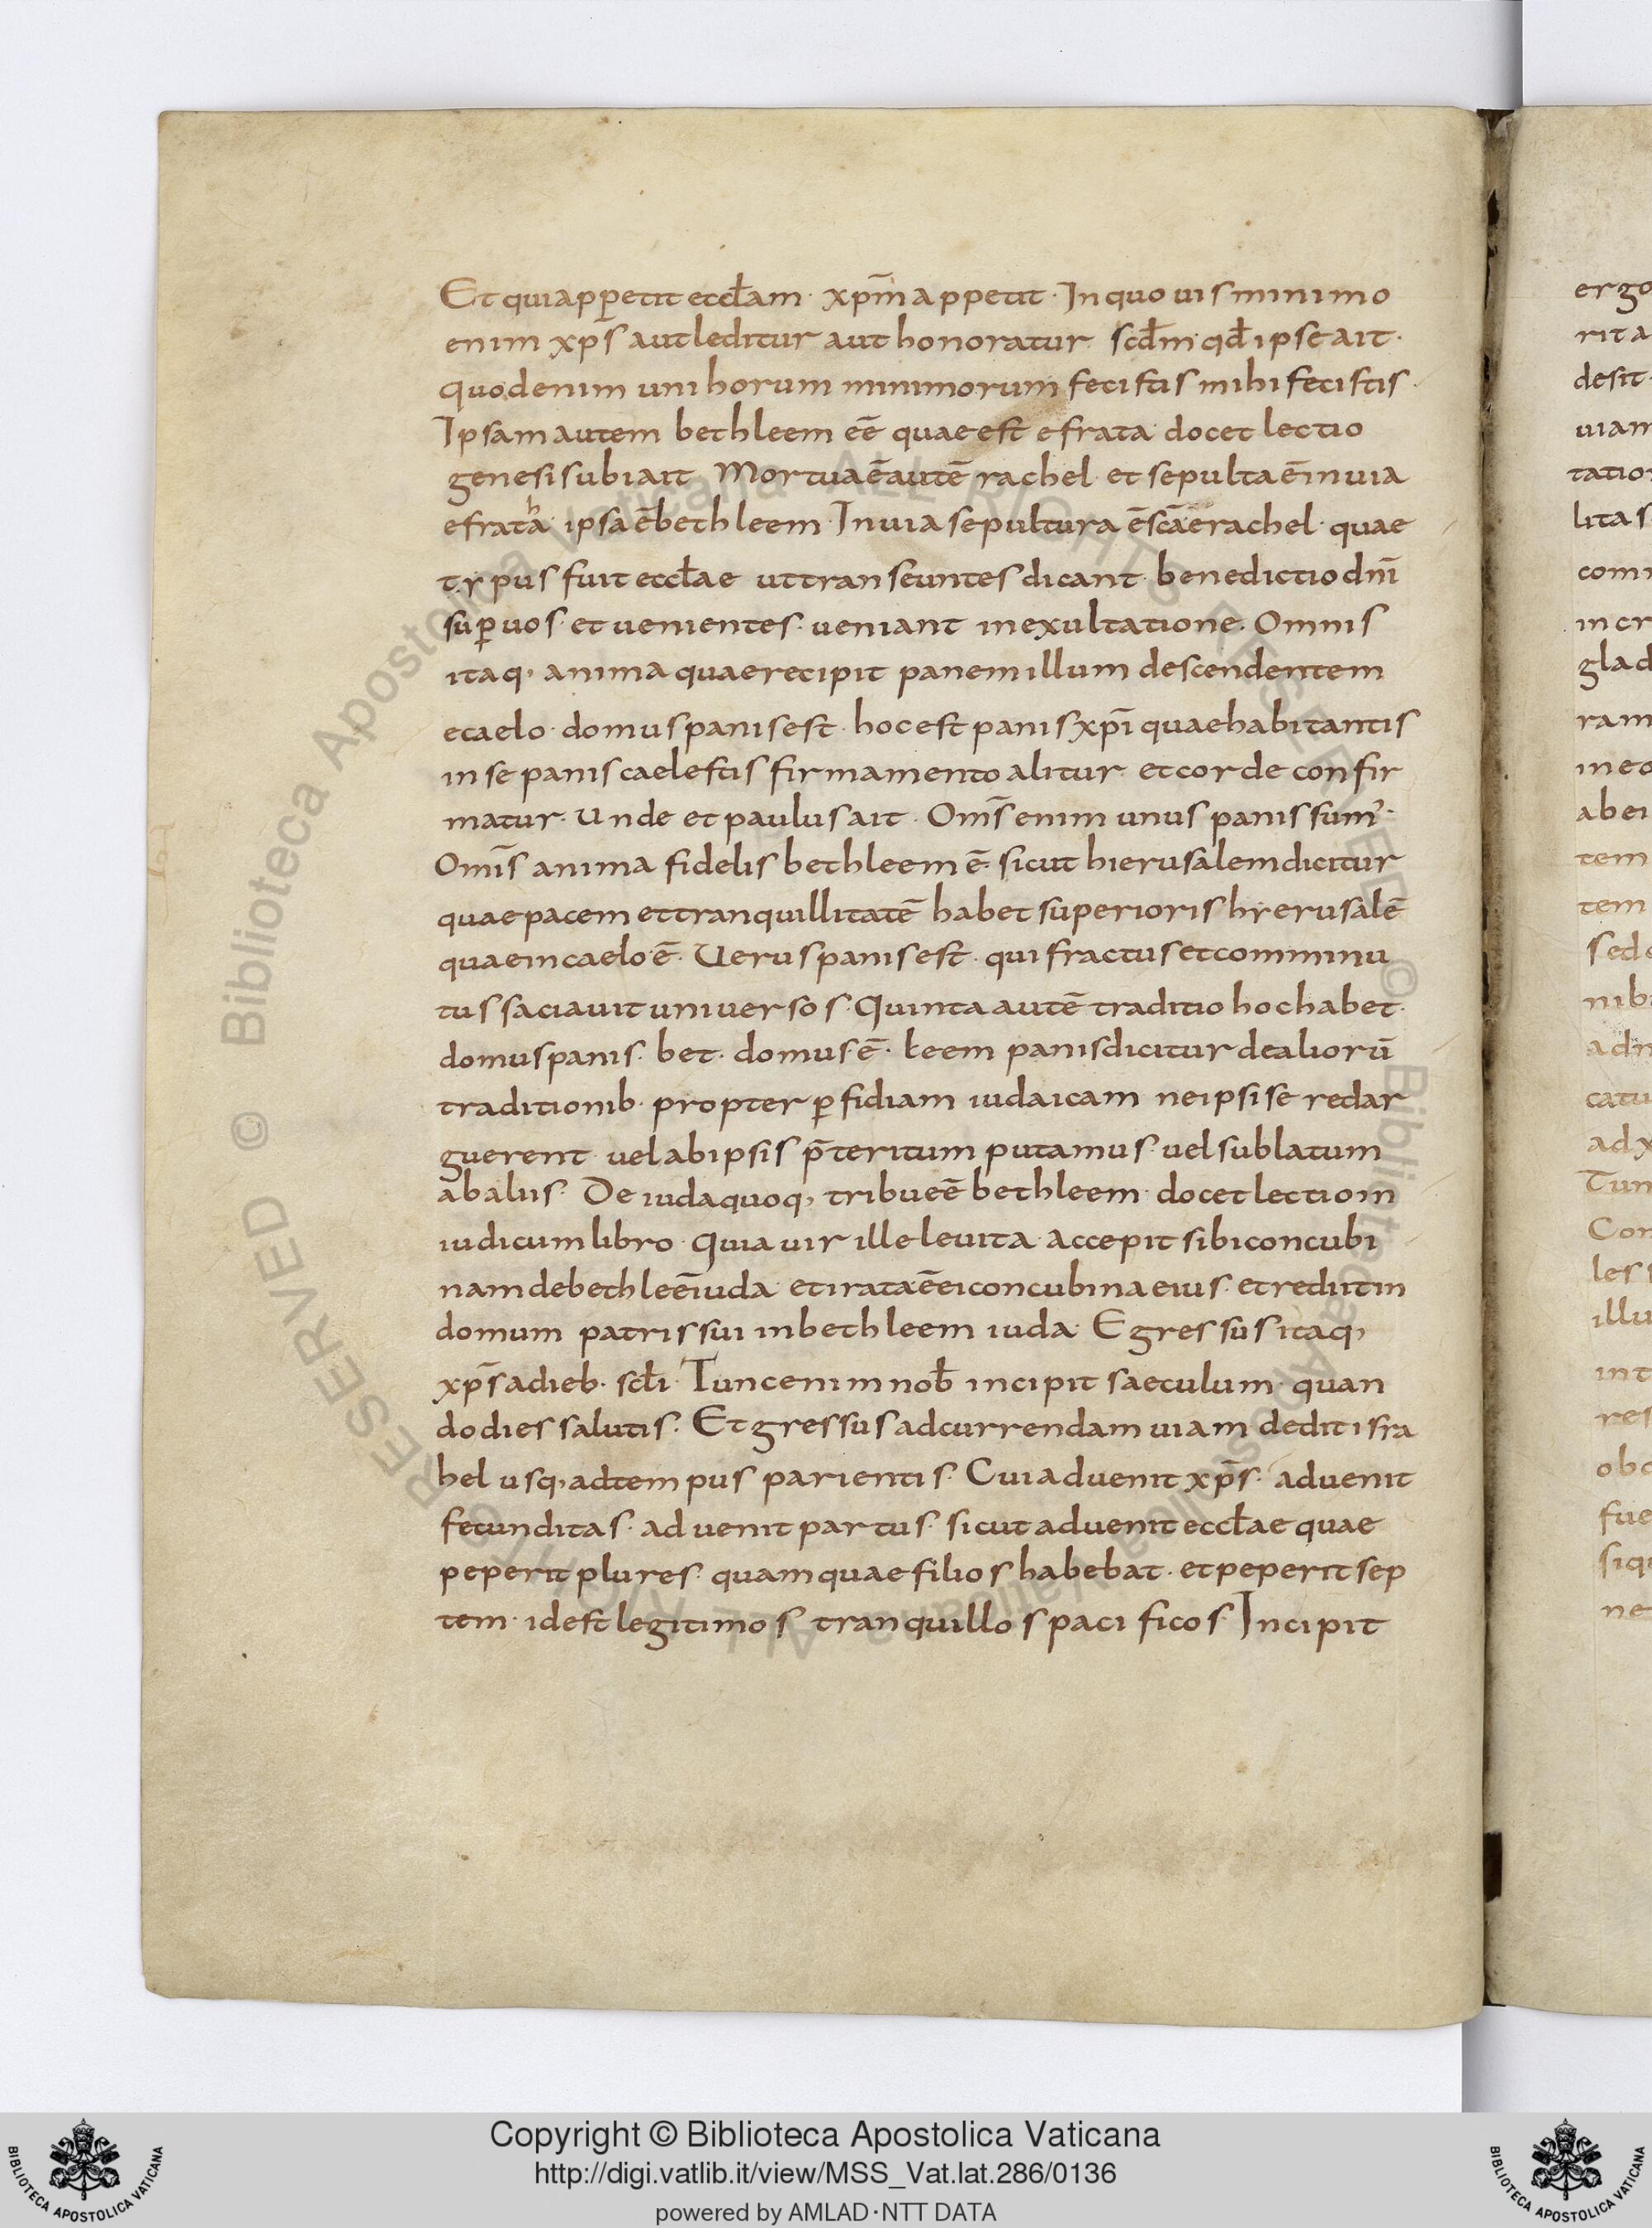 Et quia pꝑetit eccłam · xp̄m appetit · In quo uis minimo
enim xp̄s aut leditur aut honoratur scd̄m qd̄ ipse ait ·
quod enim uni horum minimorum fecistis mihi fecistis ·
Ipsam autem bethleem eē quae est efrata docet lectio
genesi subiait Mortua ē autē rachel · et sepulta ē in uia
efratha ipsa ē bethleem · In uia sepultura ē scāe rachel · quae
typus fuit eccłae ut transeuntes dicant · benedictio dn̄i
suꝑ uos · et uenientes · ueniant in exultatione · Omnis
itaq, anima quae recipit panem illum descendentem
e caelo · domus panis est · hoc est panis xp̄i quae habitantis
in se panis caelestis firmamento alitur et corde confir
matur · Unde et paulus ait · Omīs enim unus panis sum' ·
Omīs anima fidelis bethleem ē · sicut hierusalem dicitur
quae pacem et tranquillitatē habet superioris hyerusalē
quae in caelo ē · Uerus panis est · qui fractus et comminu
tus saciauit uniuersos · Quinta autē traditio hoc habet ·
domus panis · bet · domus ē · leem panis dicitur de aliorū
traditionib · propter ꝑfidiam iudaicam ne ipsi se redar
guerent · uel ab ipsis p̄teritum putamus · uel sublatum
ab aliis · De iuda quoq, tribu eē bethleem · docet lectio in
iudicum libro · quia uir ille leuita · accepit sibi concubi
nam de bethleē iuda · et irata ē ei concubina eius · et rediit in
domum patris sui in bethleem iuda · Egressus itaq,
xp̄s a dieb · scłi · Tunc enim nob̄ incipit saeculum · quan
do dies salutis · Et gressus ad currendam uiam dedit isra
hel usq, ad tempus parientis · Cui aduenit xp̄s · aduenit
fecunditas · aduenit partus · sicut aduenit eccłae quae
peperit plures · quam quae filios habebat · et peperit sep
tem · id est legitimos tranquillos pacificos · Incipit
ergo
rit a
desit ·
uiam
tatio
litas
com
in cr
glad
ram
in eo
abei
tem
tem
sed
nib
adn
catu
ad x
Tun
Con
les s
illu
in t
res
obo
fue
siqu
ne
© Biblioteca Apostolica Vaticana ALL RIGHTS RESERVED
© Biblioteca Apostolica Vaticana ALL RIGHTS RESERVED
Copyright © Biblioteca Apostolica Vaticana
http://digi.vatlib.it/view/MSS_Vat.lat.286/0136
powered by AMLAD·NTT DATA
BIBLIOTECA APOSTOLICA VATICANA
BIBLIOTECA APOSTOLICA VATICANA